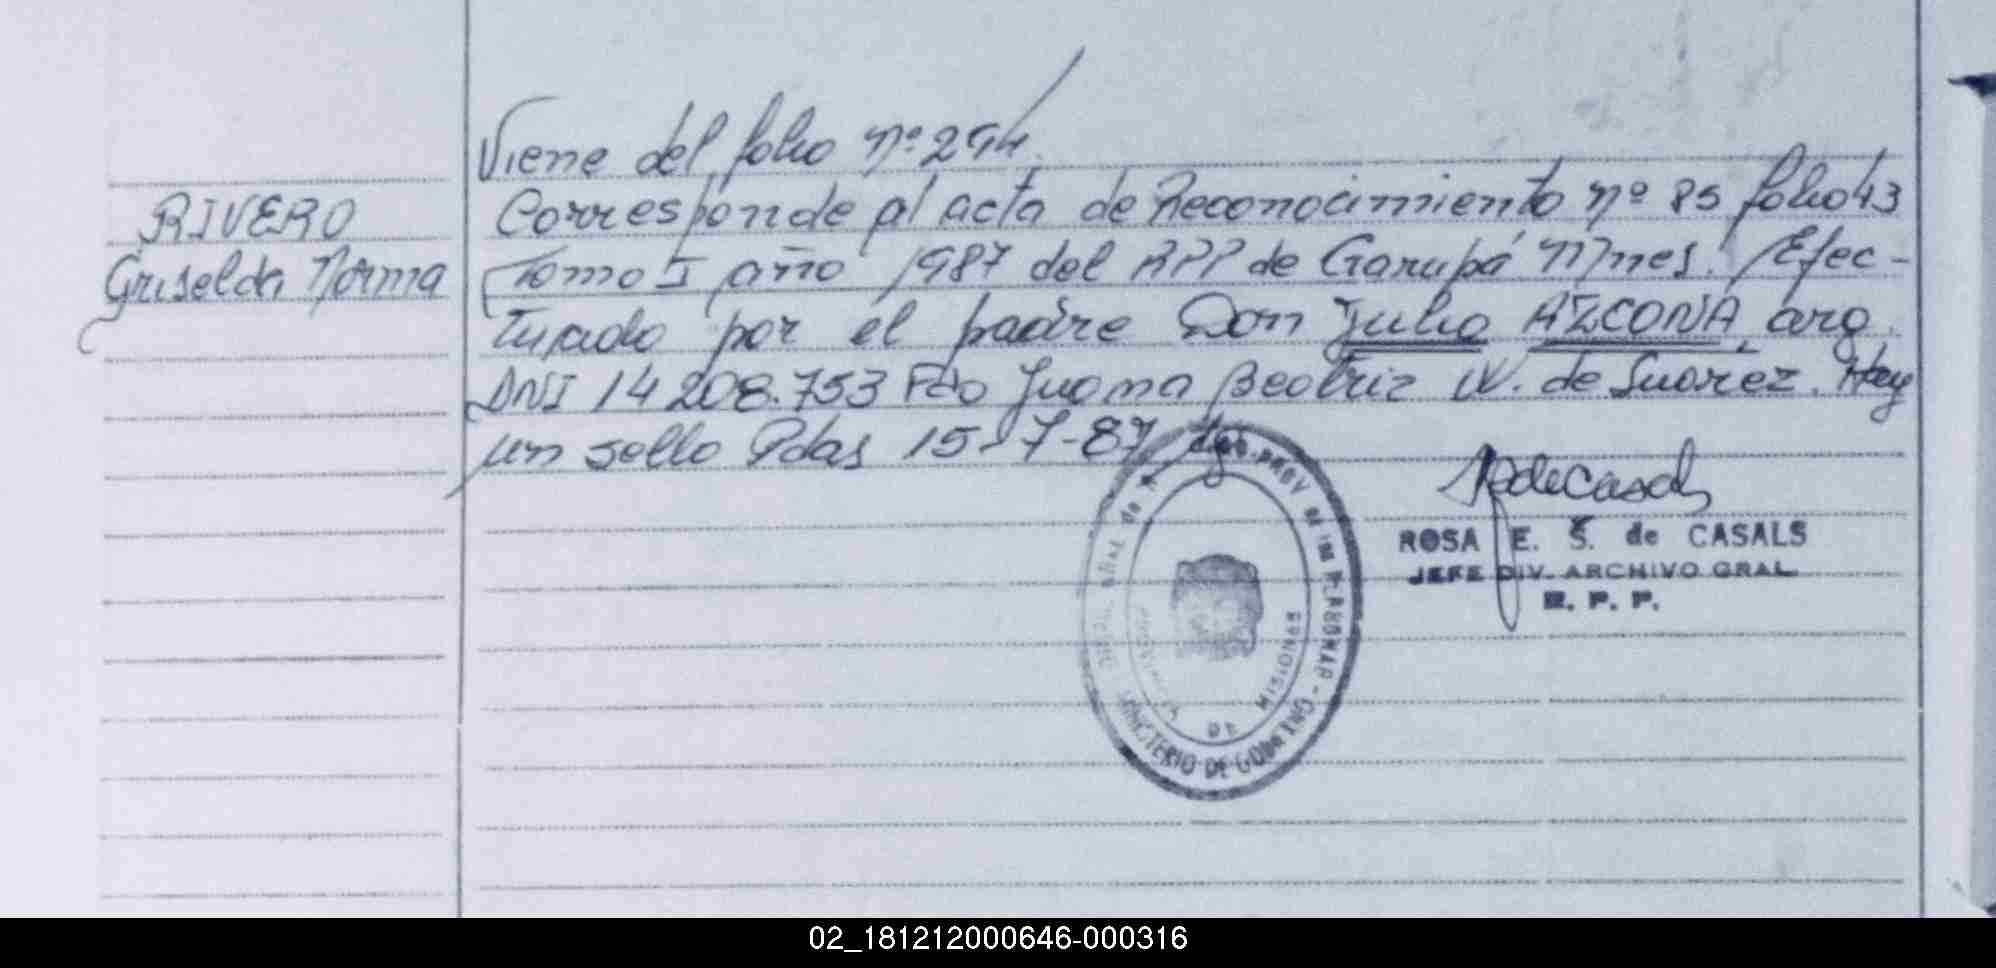 Viene del folio nº 294
RIVERO
Griselda Norma
Corresponde al acta de Reconocimiento nº 85 folio 43
Tomo I año 1987 del RPP de Garupá Mnes. Efec-
tuado por el padre Don Julio AZCONA, arg.
DNI 14 208.753 Fdo Juana Beatriz V. de Suarez. Hay
un sello Pdas 15-7-87
ROSA E. S. de CASALS
JEFE DIV. ARCHIVO GRAL.
R. P. P.
MINISTERIO DE GOBIERNO
DE MISIONES
02_181212000646-000316